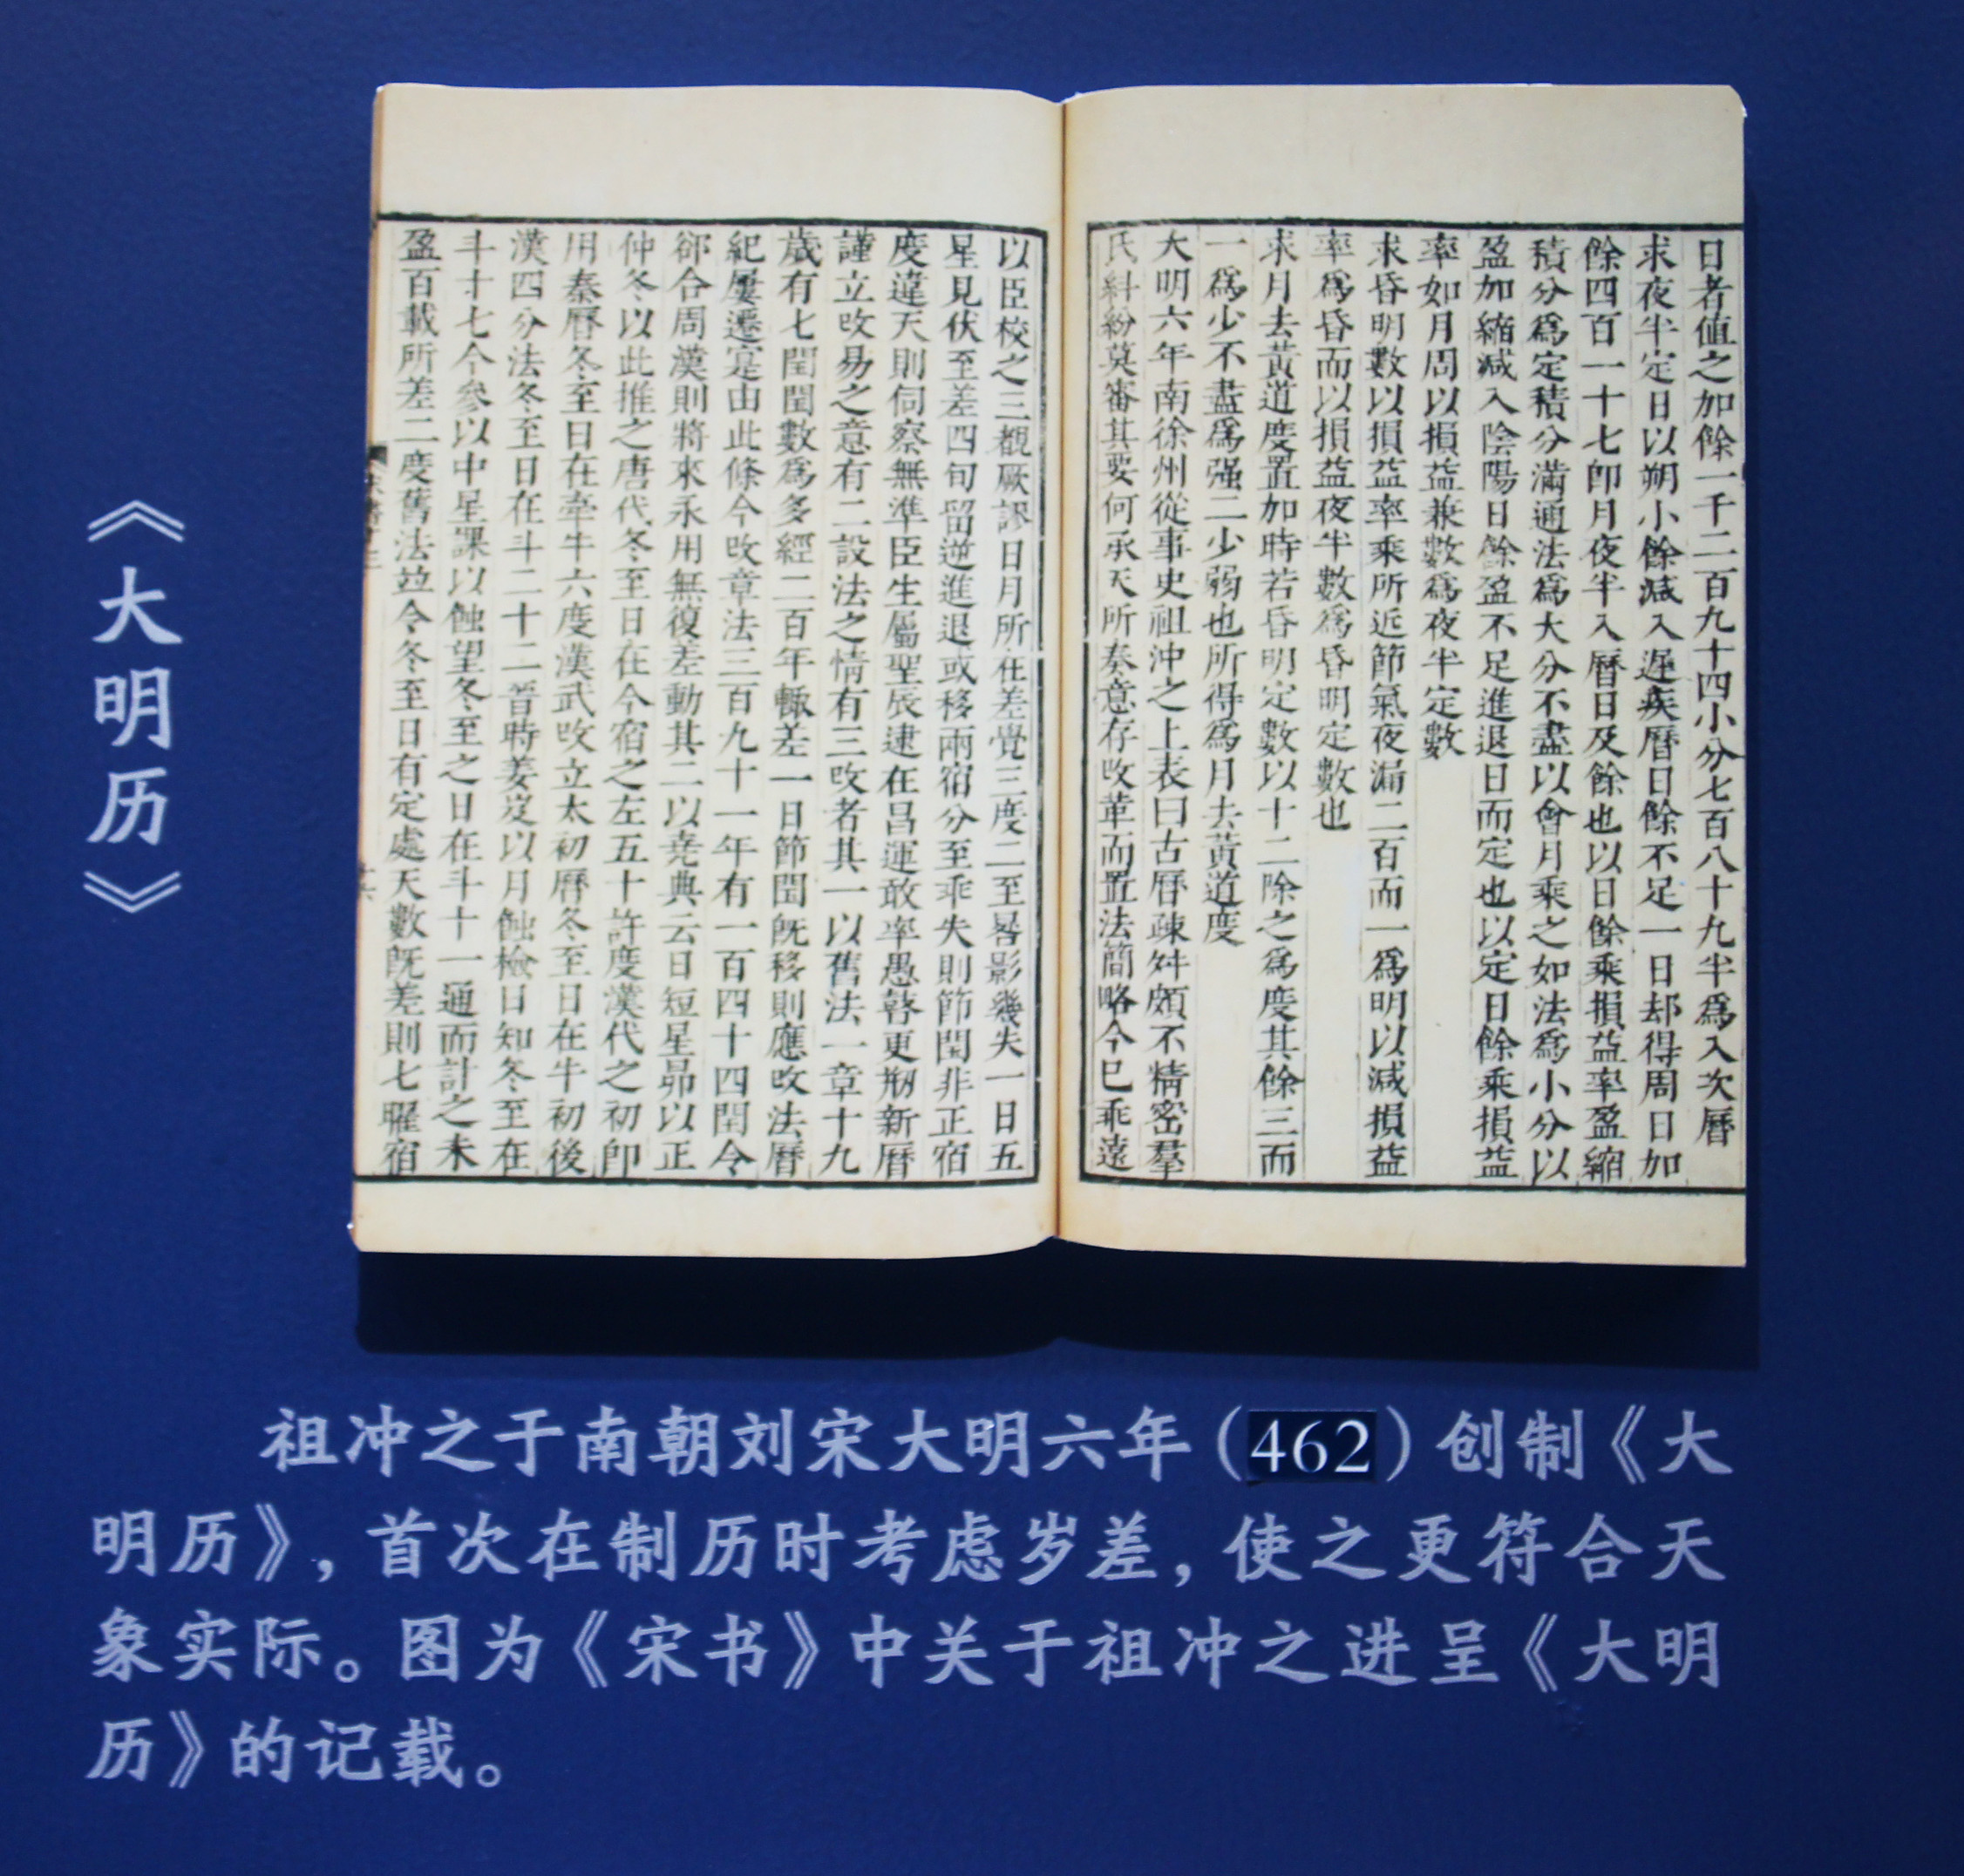 《大明历》
日者值之加餘一千二百九十四小分七百八十九半爲入次曆
求夜半定日以朔小餘減入遲疾曆日餘不足一日却得周日加
餘四百一十七卽月夜半入曆日及餘也以日餘乘損益率盈縮
積分爲定積分滿通法爲大分不盡以會月乘之如法爲小分以
盈加縮減入陰陽日餘盈不足進退日而定也以定日餘乘損益
率如月周以損益兼數爲夜半定數
求昏明數以損益率乘所近節氣夜漏二百而一爲明以減損益
率爲昏而以損益夜半數爲昏明定數也
求月去黃道度置加時若昏明定數以十二除之爲度其餘三而
一爲少不盡爲强二少弱也所得爲月去黃道度
大明六年南徐州從事史祖沖之上表曰古曆疎舛頗不精密羣
氏糾紛莫審其要何承天所奏意存改革而置法簡略今已乖遠
以臣校之三覩厥謬日月所在差覺三度二至晷影幾失一日五
星見伏至差四旬留逆進退或移兩宿分至乖失則節閏非正宿
度違天則伺察無準臣生屬聖辰逮在昌運敢率愚瞽更剏新曆
謹立改易之意有二設法之情有三改者其一以舊法一章十九
歲有七閏閏數爲多經二百年輒差一日節閏旣移則應改法曆
紀屢遷寔由此條今改章法三百九十一年有一百四十四閏令
郤合周漢則將來永用無復差動其二以堯典云日短星昴以正
仲冬以此推之唐代冬至日在今宿之左五十許度漢代之初卽
用秦曆冬至日在牽牛六度漢武改立太初曆冬至日在牛初後
漢四分法冬至日在斗二十二晉時姜岌以月蝕檢日知冬至在
斗十七今參以中星課以蝕望冬至之日在斗十一通而計之未
盈百載所差二度舊法並令冬至日有定處天數旣差則七曜宿
祖冲之于南朝刘宋大明六年（462）创制《大
明历》，首次在制历时考虑岁差，使之更符合天
象实际。图为《宋书》中关于祖冲之进呈《大明
历》的记载。